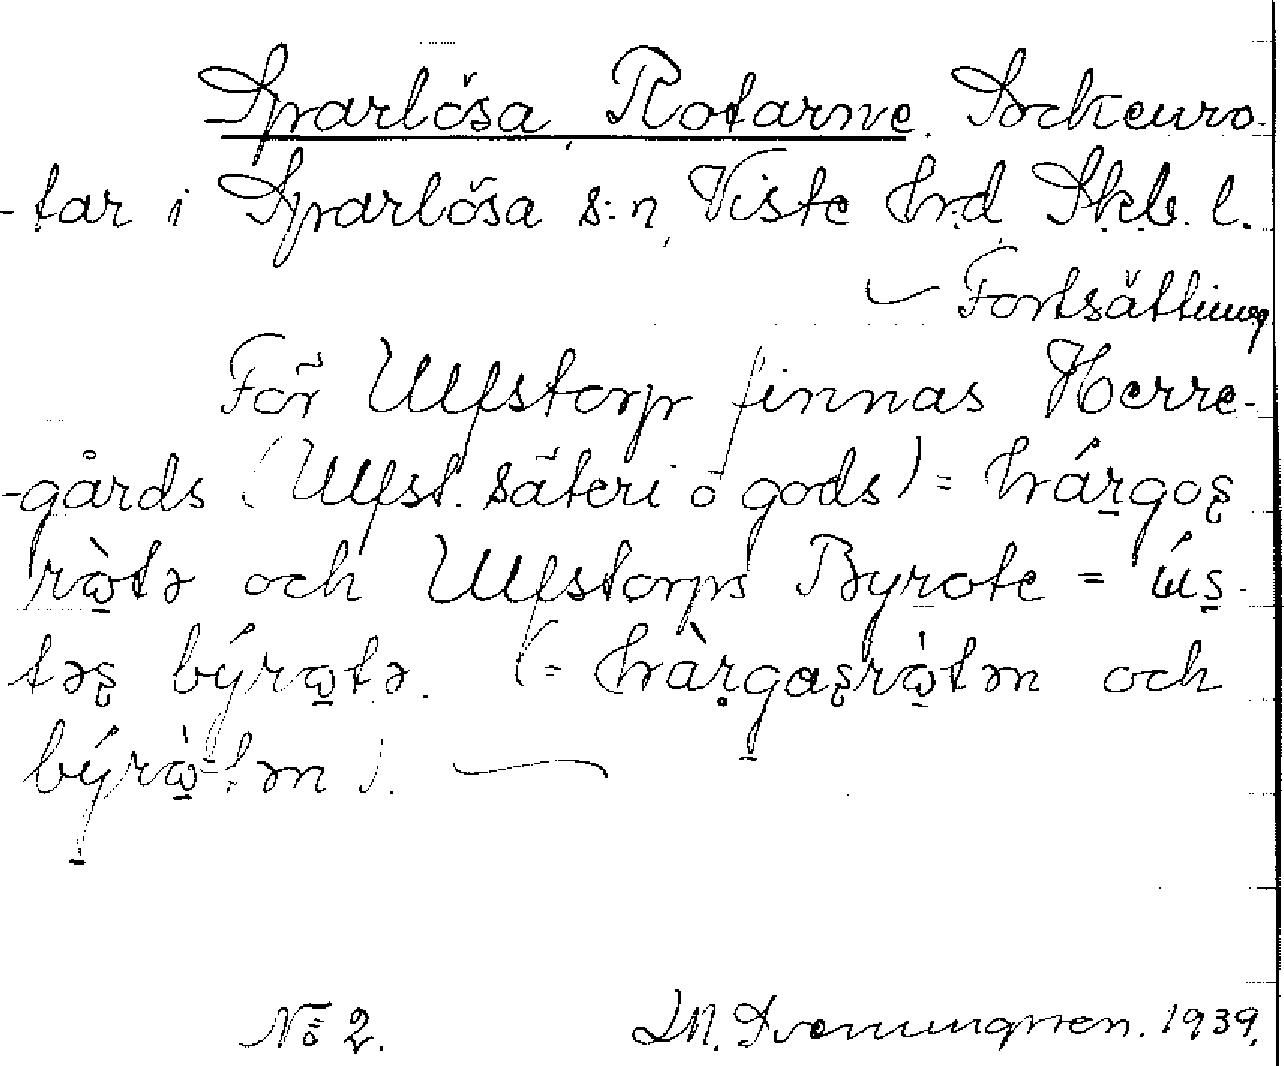 Sparlösa Rotarne. Sockenro-
-tar i Sparlösa s:n, Viste hrd Skb. l.
Fortsättning
För Ulfstorp finnas Herre-
-gårds (Ulfst. säteri o gods) = hárgoʂ
rò̱tə och Ulfstorps Byrote = ús̱-
təʂ býro̱tə. (= hàrgaʂrò̱tən och
býrò̱tən). 
No 2.
1939.